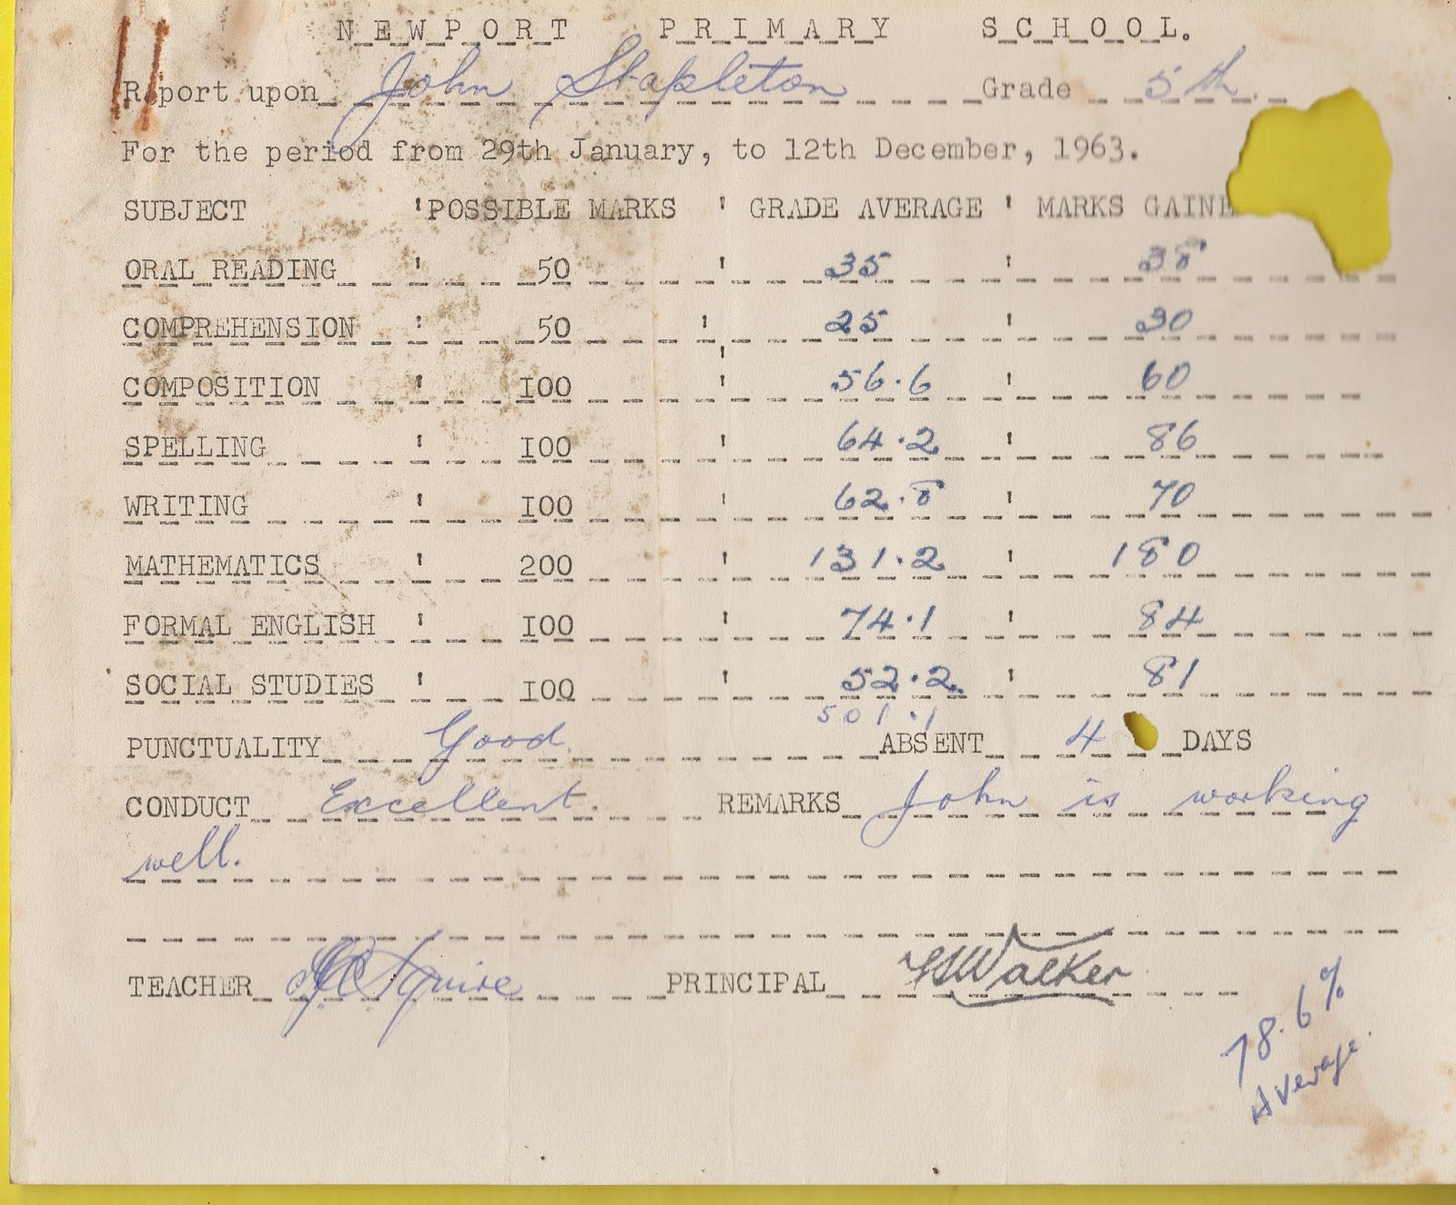 NEWPORT PRIMARY SCHOOL.
Report upon John Stapleton Grade 5th.
For the period from 29th January, to 12th December, 1963.
SUBJECT ' POSSIBLE MARKS ' GRADE AVERAGE ' MARKS GAINE
ORAL READING ' 50 ' 35 ' 38
COMPREHENSION ' 50 ' 25 ' 30
COMPOSITION ' 100 ' 56.6 ' 60
SPELLING ' 100 ' 64.2 ' 86
WRITING ' 100 ' 62.8 ' 70
MATHEMATICS ' 200 ' 131.2 ' 180
FORMAL ENGLISH ' 100 ' 74.1 ' 84
SOCIAL STUDIES ' 100 ' 52.2 ' 81
501.1
PUNCTUALITY Good. ABSENT 4 DAYS
CONDUCT Excellent. REMARKS John is working
well.
TEACHER PRINCIPAL Walker
78.6%
Average.